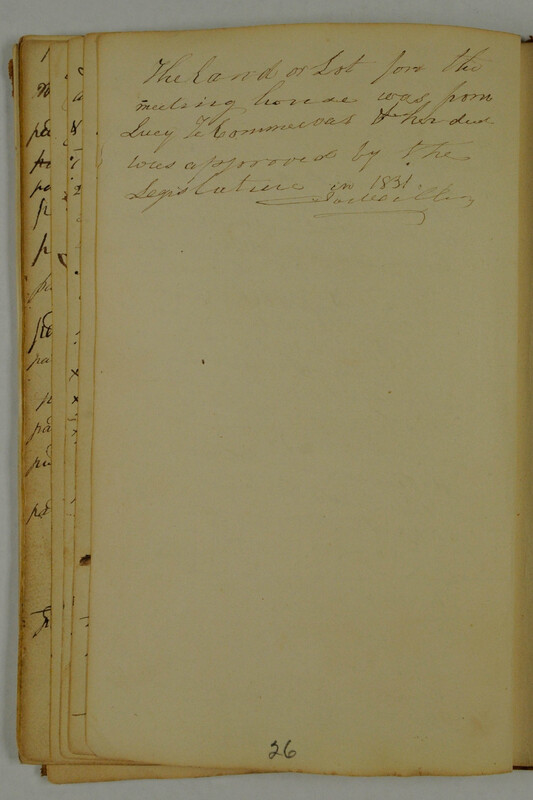 The Land or Lot for the
meeting house was from
Lucy TeCommewas & her deed
was approved by the
Legislature in 1831
26